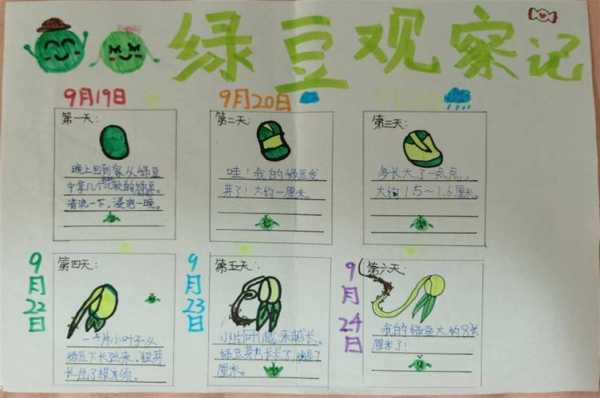 绿豆观察记
9月19日
第一天:
晚上回到家从绿豆
中拿几个
清洗一下,浸泡一晚。
9月20日
第二天:
哇!我的绿豆发
芽了!大约一厘米。
第三天:
多长大了一点点,
大约1.5~1.6厘米。
9月22日
第四天:
一片小叶子从
绿豆下长出来,
长出了根
9月23日
第五天:
小叶子越来越长。
绿豆
厘米。
9月24日
第六天:
我的绿豆大约8
厘米了!